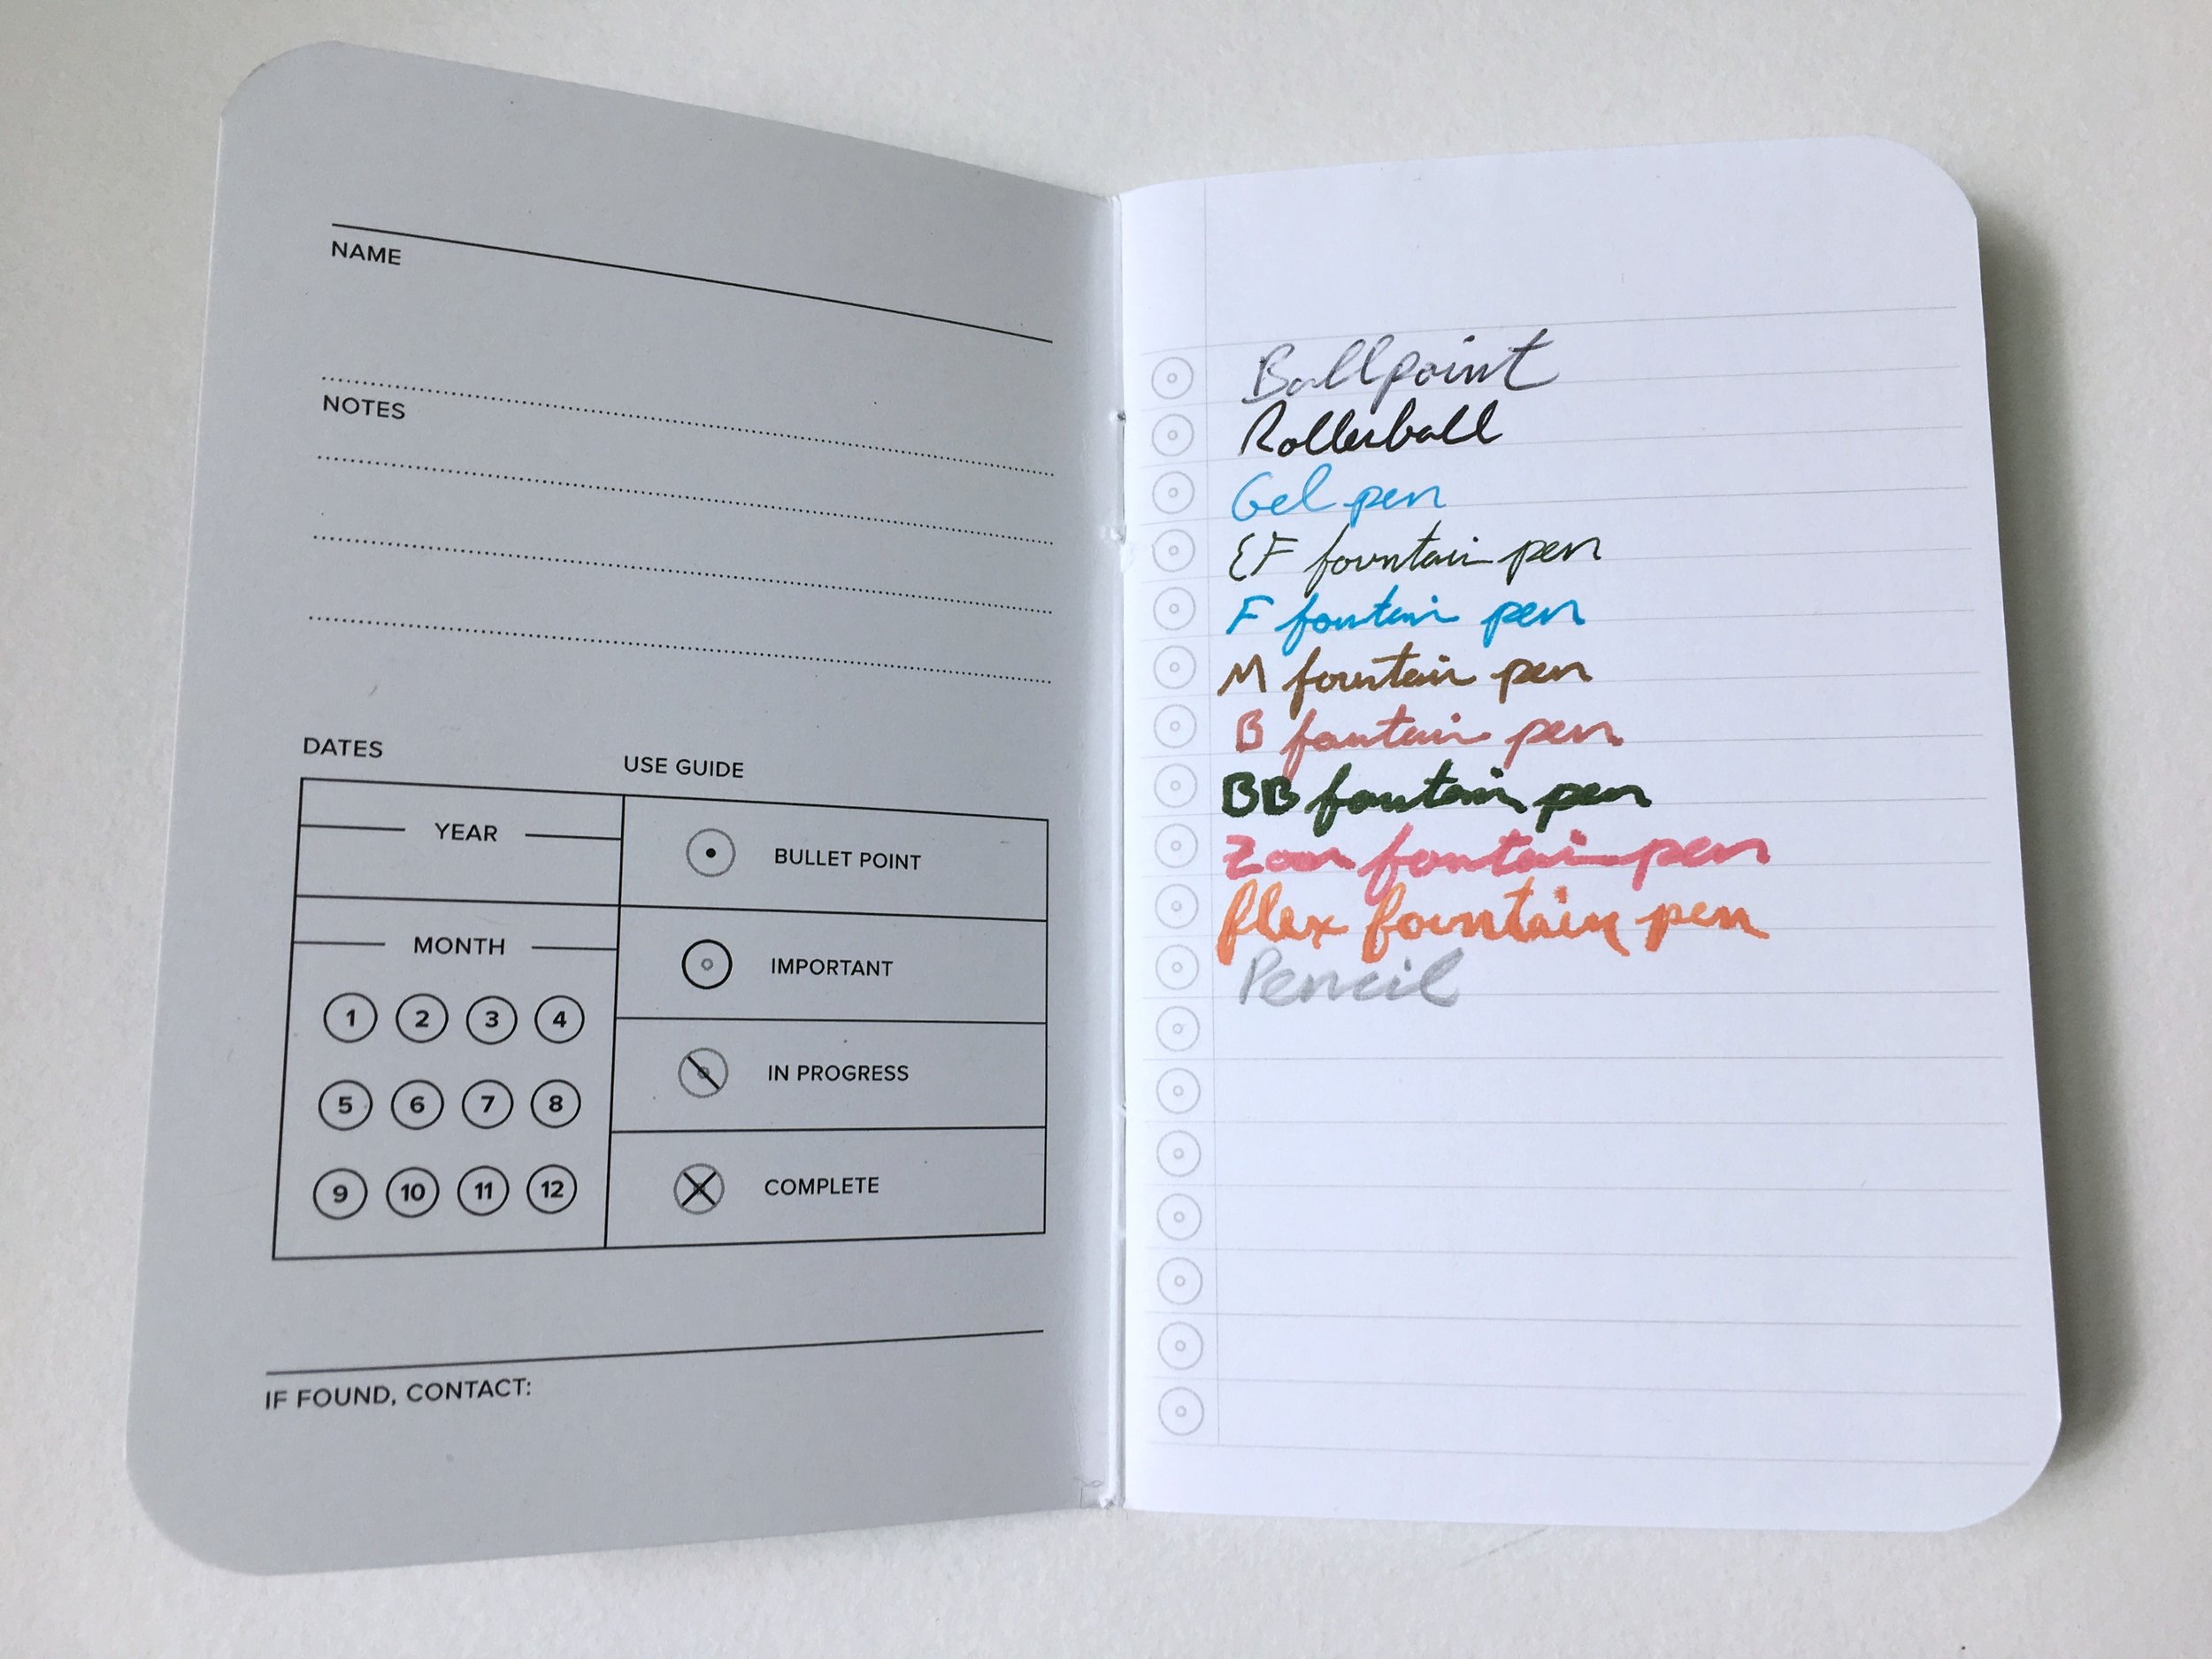 NAME
NOTES
DATES
USE GUIDE
YEAR
BULLET POINT
MONTH
IMPORTANT
1 2 3 4
IN PROGRESS
5 6 7 8
COMPLETE
9 10 11 12
IF FOUND, CONTACT:
Ballpoint
Rollerball
Gel pen
EF fountain pen
F fountain pen
M fountain pen
B fountain pen
BB fountain pen
Zoom fountain pen
flex fountain pen
Pencil